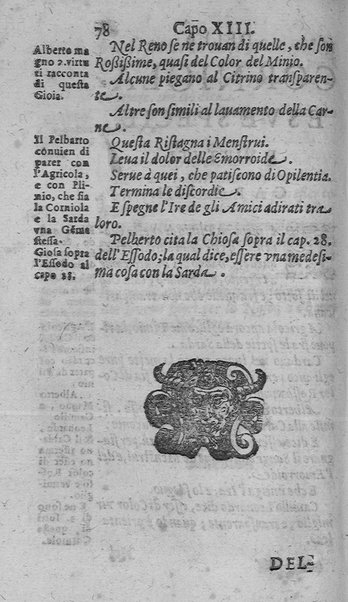 78 Capo XIII.
Nel Reno se ne trouan di quelle, che son
Rossissime, quasi del Color del Minio.
Alcune piegano al Citrino transparen-
te.
Altre son simili al lauamento della Car-
ne.
Questa Ristagna i Menstrui.
Leua il dolor delle Emorroide.
Serue à quei, che patiscono di Opilentia.
Termina le discordie.
E spegne l'Ire de gli Amici adirati tra
loro.
Pelberto cita la Chiosa sopra il cap. 28.
dell'Essodo; la qual dice, essere vna medesi-
ma cosa con la Sarda.
Alberto ma
gno 2. virtu
ti racconta
di questa
Gioia.
Il Pelbarto
conuien di
parer con
l'Agricola,
e con Pli-
nio, che sia
la Corniola
e la Sarda
vna Gẽma
stessa.
Giosa sopra
l'Essodo al
capo 28.
DEL-